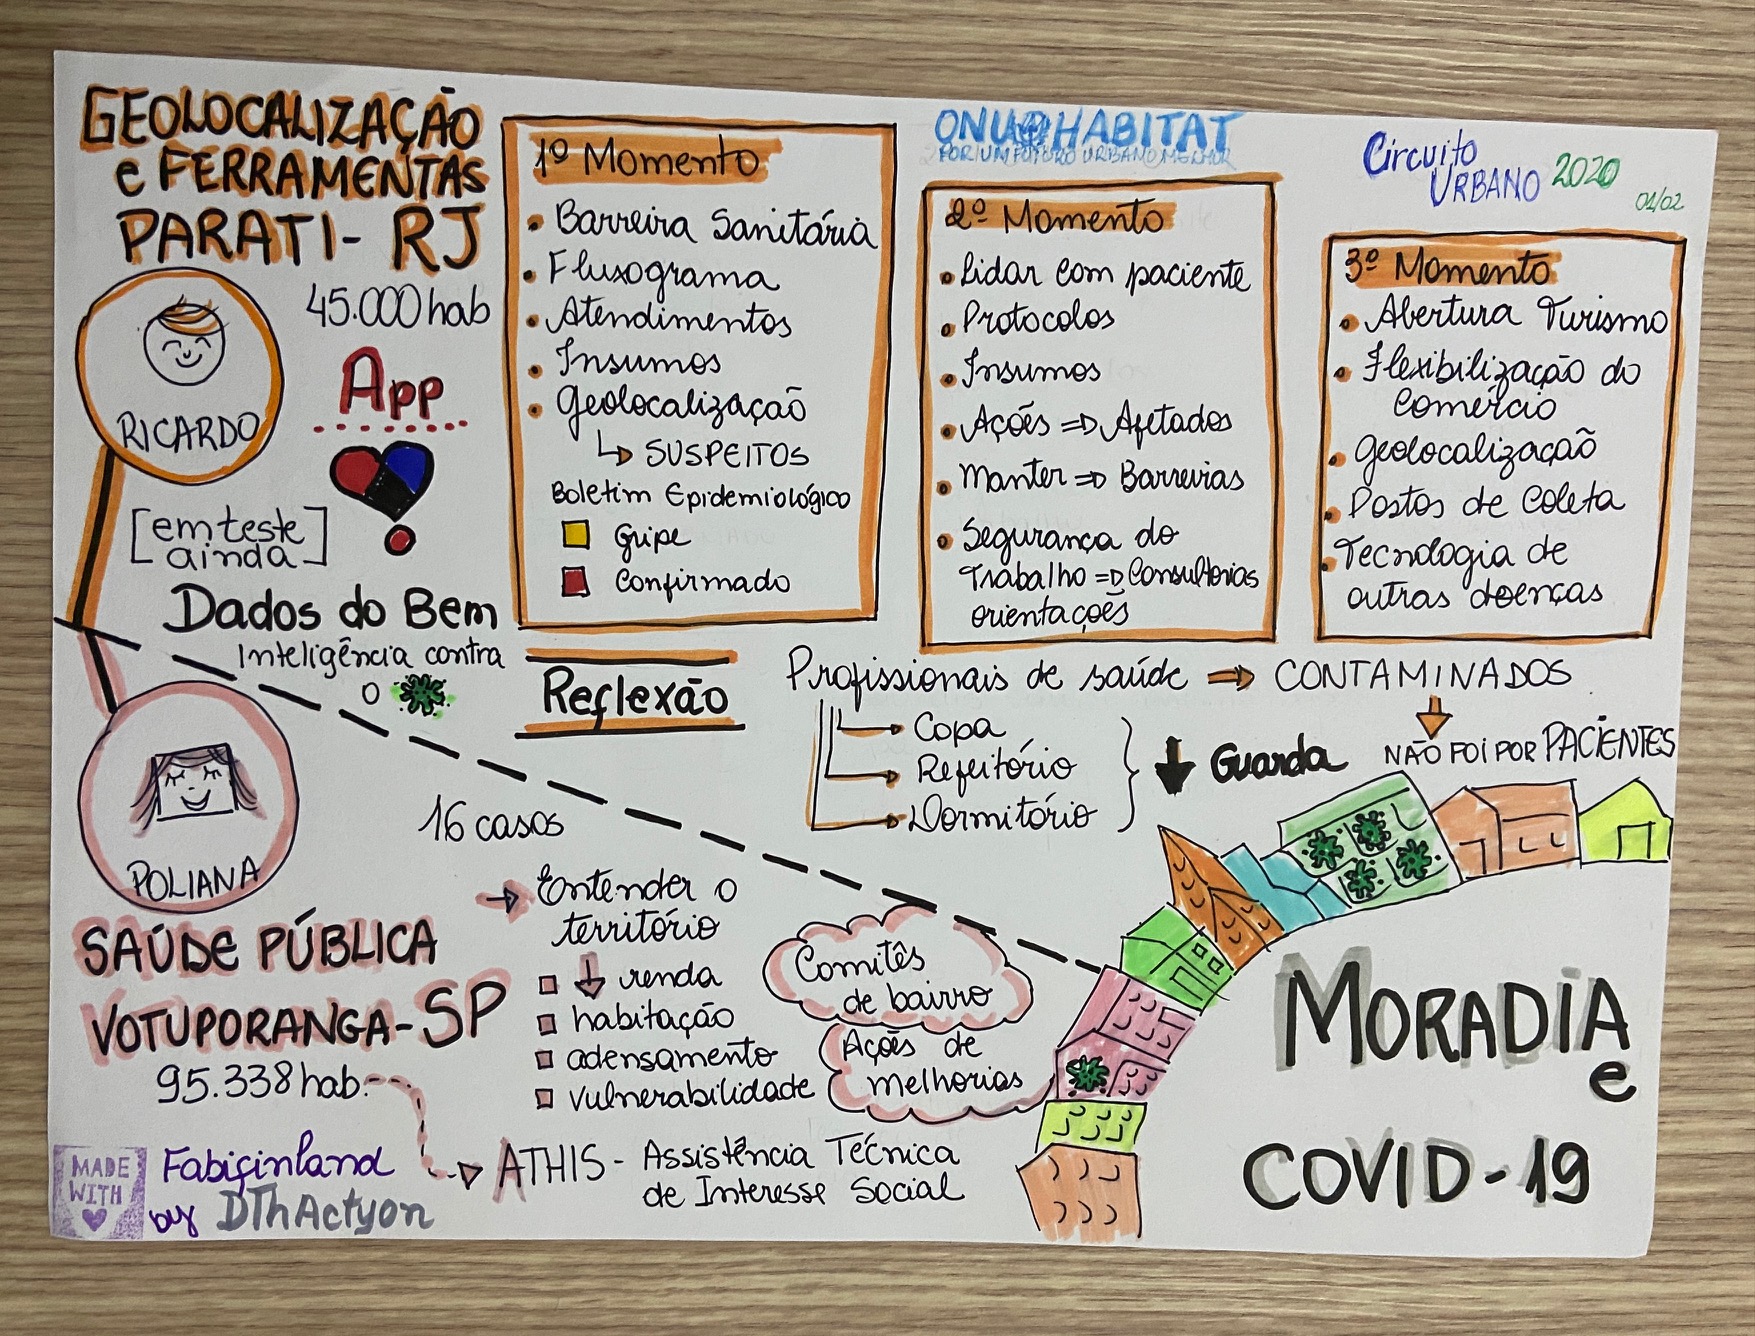 GEOLOCALIZAÇÃO
e FERRAMENTAS
PARATI - RJ
45.000 hab
RICARDO
App
[em teste
ainda]
Dados do Bem
Inteligência contra
o
1º Momento
• Barreira Sanitária
• Fluxograma
• Atendimentos
• Insumos
• Geolocalização
SUSPEITOS
Boletim Epidemiológico
Gripe
Confirmado
ONU HABITAT
POR UM FUTURO URBANO MELHOR
2º Momento
• Lidar com paciente
• Protocolos
• Insumos
• Ações => Afetados
• Manter => Barreiras
• Segurança do
Trabalho => Consultorias
orientações
Circuito
URBANO 2020
01/02
3º Momento
• Abertura Turismo
• Flexibilização do
Comércio
• Geolocalização
• Postos de Coleta
• Tecnologia de
outras doenças
Reflexão
Profissionais de saúde → CONTAMINADOS
Copa
Refeitório
Dormitório
↓ Guarda
NÃO FOI POR PACIENTES
POLIANA
16 casos
SAÚDE PÚBLICA
VOTUPORANGA - SP
95.338 hab.
→ Entender o
território
↓ renda
habitação
adensamento
vulnerabilidade
Comitês
de bairro
Ações de
melhorias
ATHIS - Assistência Técnica
de Interesse Social
MORADIA
e
COVID-19
MADE
WITH
Fabifinland
by DThActyon